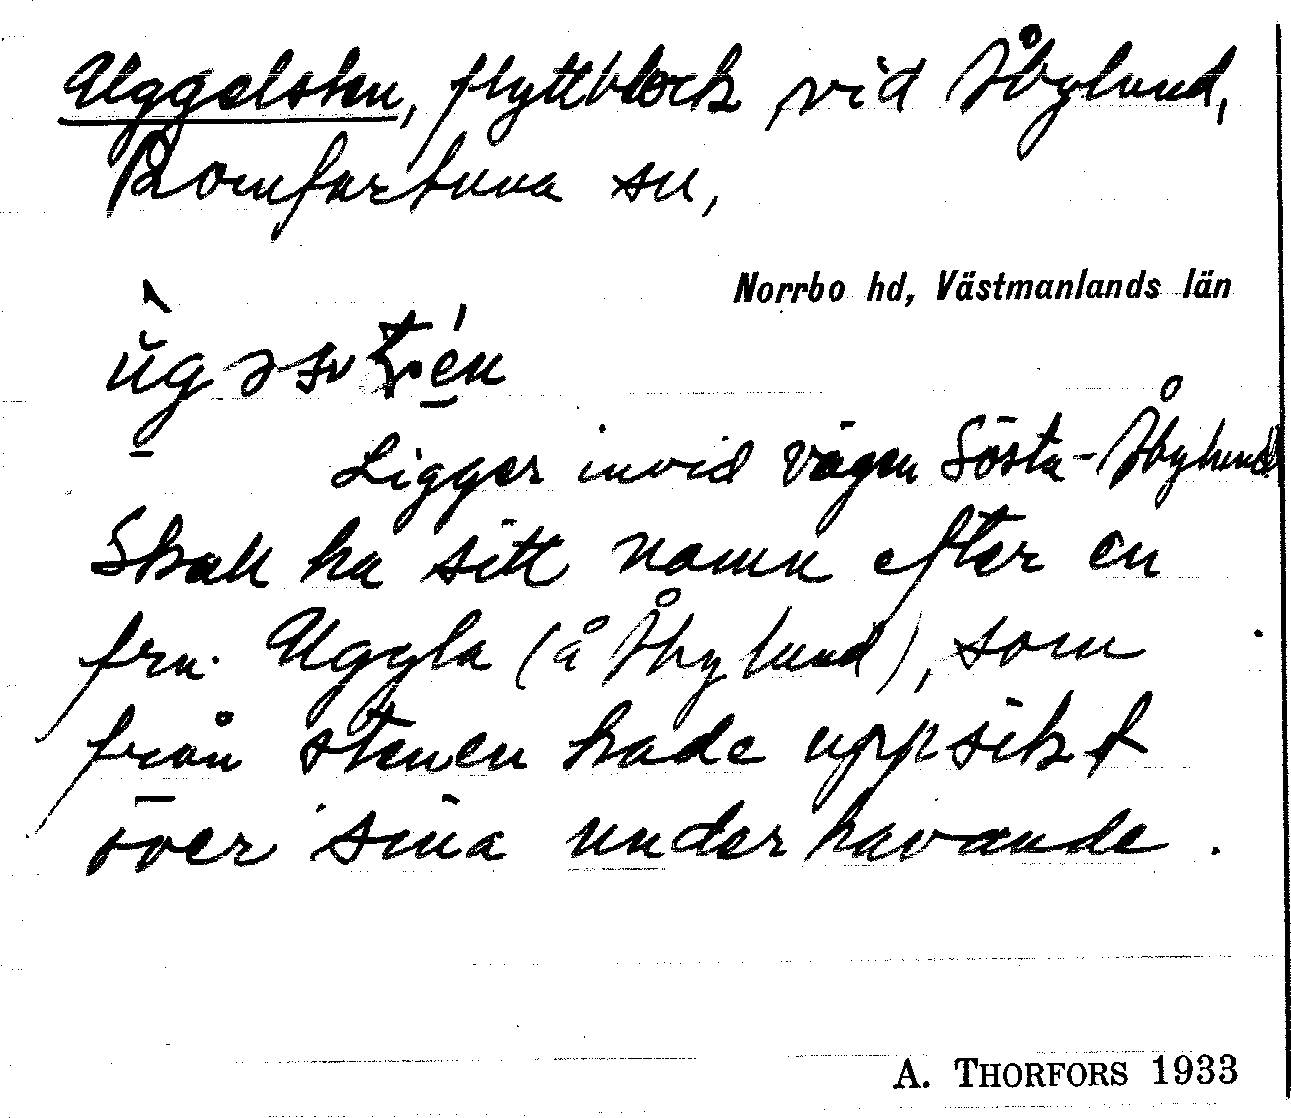 Uggelsten, flyttblock vid Åbylund,
Romfartuna sn,
Norrbo hd, Västmanlands län
Ligger invid vägen Sösta-Åbylund
Skall ha sitt namn efter en
fru Uggla (å Åbylund), som
från stenen hade uppsikt
över sina underhavande.
A. THORFORS 1933